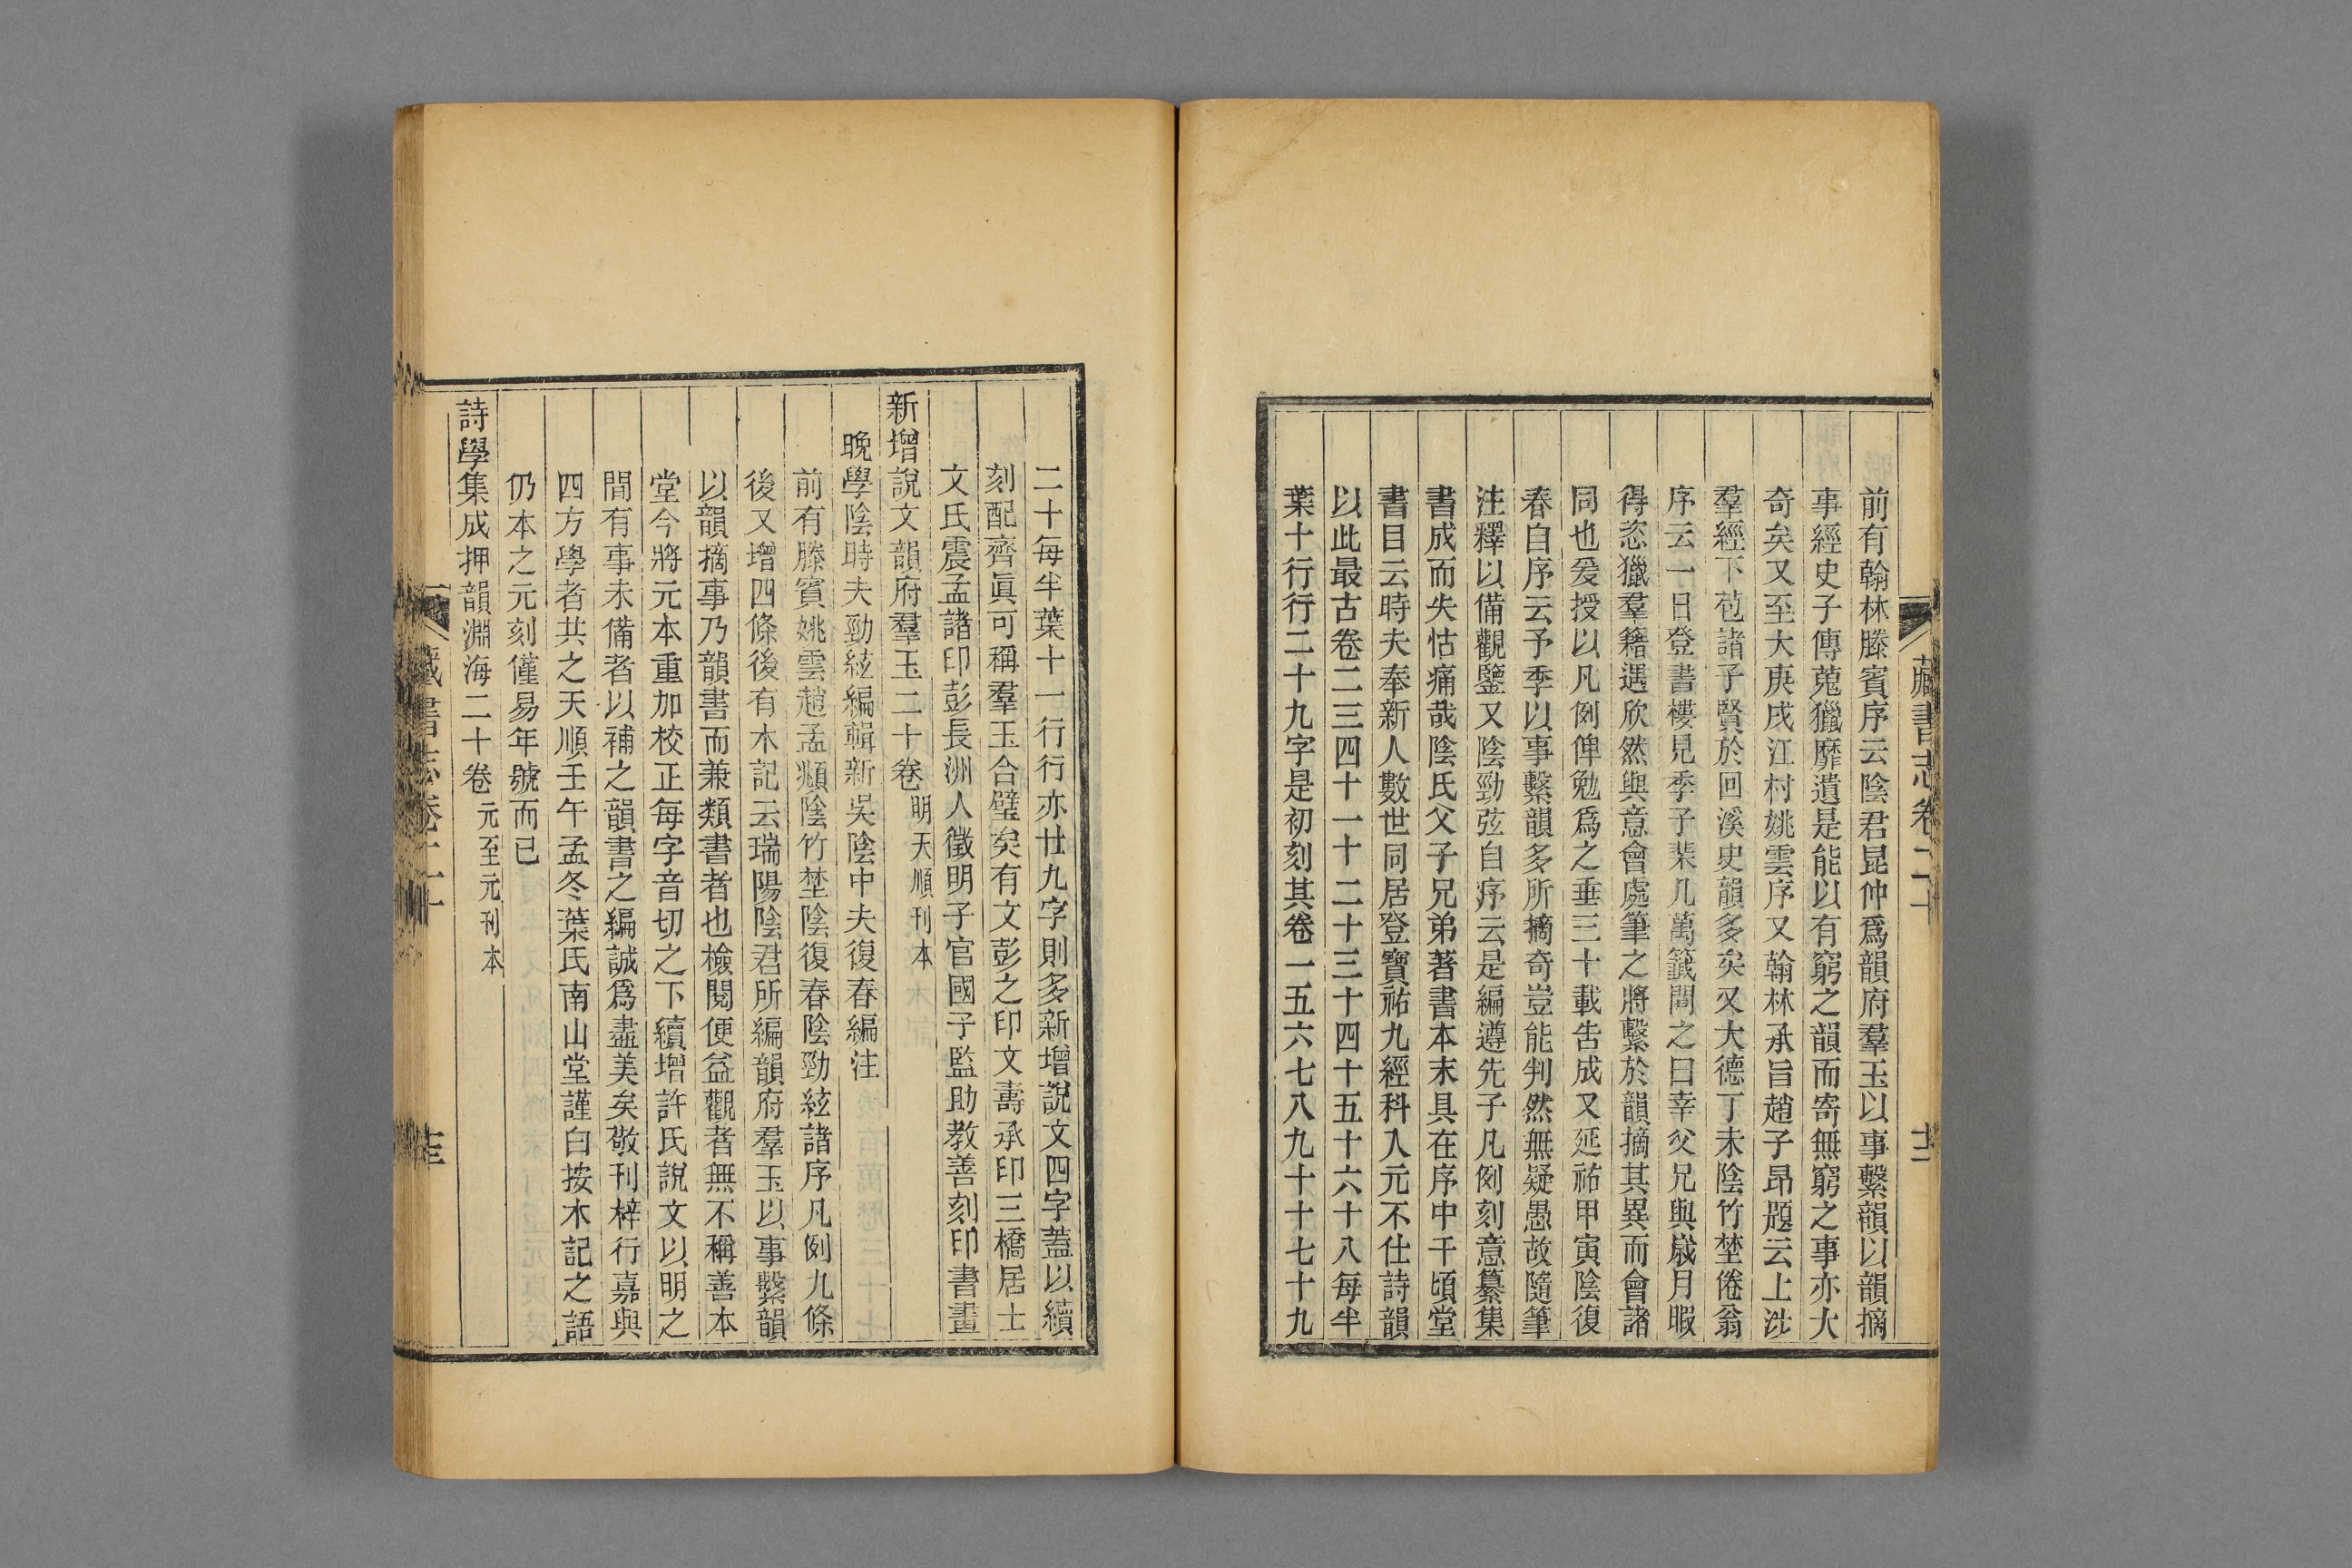 藏書志卷二十
前有翰林滕賓序云陰君昆仲爲韻府羣玉以事繫韻以韻摘
事經史子傳蒐獵靡遺是能以有窮之韻而寄無窮之事亦大
奇矣又至大庚戌江村姚雲序又翰林承旨趙子昂題云上涉
羣經下苞諸子賢於回溪史韻多矣又大德丁未陰竹埜倦翁
序云一日登書樓見季子棐几萬籤閒之曰幸父兄與歲月暇
得恣獵羣籍遇欣然與意會處筆之將繫於韻摘其異而會諸
同也爰授以凡例俾勉爲之垂三十載告成又延祐甲寅陰復
春自序云予季以事繫韻多所摘奇豈能判然無疑愚故隨筆
注釋以備觀鑒又陰勁弦自序云是編遵先子凡例刻意纂集
書成而失怙痛哉陰氏父子兄弟著書本末具在序中千頃堂
書目云時夫奉新人數世同居登寶祐九經科入元不仕詩韻
以此最古卷二三四十一十二十三十四十五十六十八每半
葉十行行二十九字是初刻其卷一五六七八九十十七十九
二十每半葉十一行行亦廿九字則多新增說文四字蓋以續
刻配齊眞可稱羣玉合璧矣有文彭之印文壽承印三橋居士
文氏震孟諸印彭長洲人徵明子官國子監助教善刻印書畫
新增說文韻府羣玉二十卷明天順刊本
晚學陰時夫勁絃編輯新吳陰中夫復春編注
前有滕賓姚雲趙孟頫陰竹埜陰復春陰勁絃諸序凡例九條
後又增四條後有木記云瑞陽陰君所編韻府羣玉以事繫韻
以韻摘事乃韻書而兼類書者也檢閱便益觀者無不稱善本
堂今將元本重加校正每字音切之下續增許氏說文以明之
間有事未備者以補之韻書之編誠爲盡美矣敬刊梓行嘉與
四方學者共之天順壬午孟冬葉氏南山堂謹白按木記之語
仍本之元刻僅易年號而已
詩學集成押韻淵海二十卷元至元刊本
藏書志卷二十